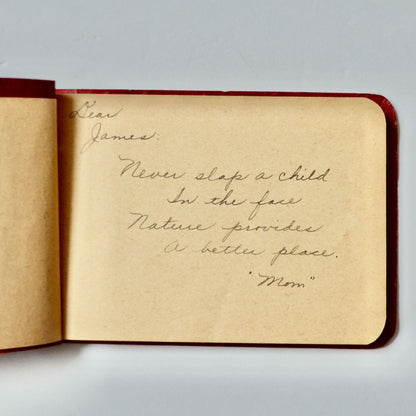 Dear
James:
Never slap a child
In the face
Nature provides
A better place.
"Mom"